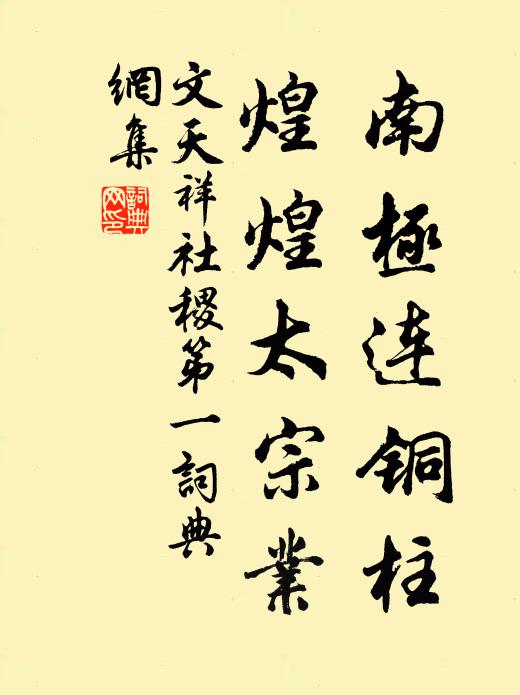 南極连铜柱
煌煌太宗業
文天祥社稷第一詞典
網集
詞典网印